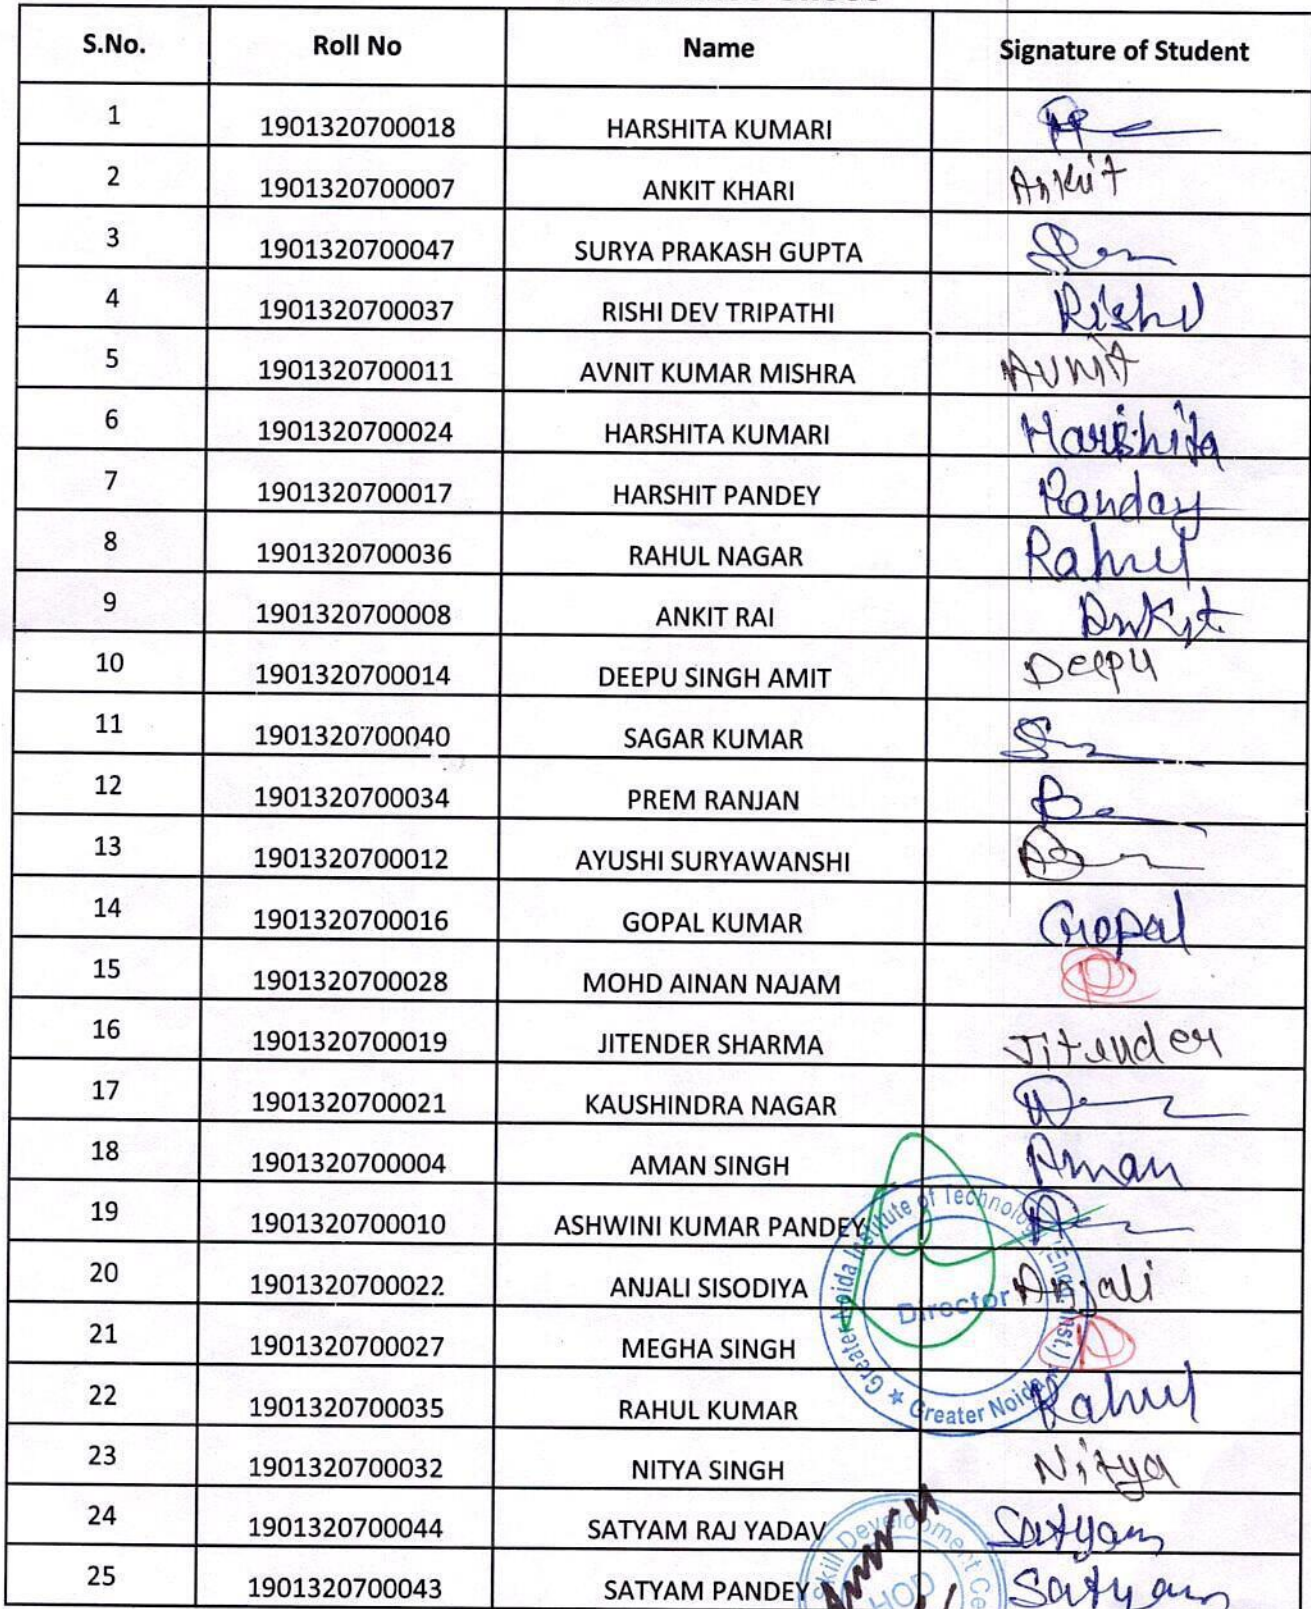 S.No. Roll No Name Signature of Student
1 1901320700018 HARSHITA KUMARI
2 1901320700007 ANKIT KHARI Ankit
3 1901320700047 SURYA PRAKASH GUPTA
4 1901320700037 RISHI DEV TRIPATHI Rishi
5 1901320700011 AVNIT KUMAR MISHRA Avnit
6 1901320700024 HARSHITA KUMARI Harshita
7 1901320700017 HARSHIT PANDEY Panday
8 1901320700036 RAHUL NAGAR Rahul
9 1901320700008 ANKIT RAI Ankit
10 1901320700014 DEEPU SINGH AMIT Deepu
11 1901320700040 SAGAR KUMAR
12 1901320700034 PREM RANJAN
13 1901320700012 AYUSHI SURYAWANSHI
14 1901320700016 GOPAL KUMAR Gopal
15 1901320700028 MOHD AINAN NAJAM
16 1901320700019 JITENDER SHARMA Jitender
17 1901320700021 KAUSHINDRA NAGAR
18 1901320700004 AMAN SINGH Aman
19 1901320700010 ASHWINI KUMAR PANDEY
20 1901320700022 ANJALI SISODIYA Anjali
21 1901320700027 MEGHA SINGH
22 1901320700035 RAHUL KUMAR Rahul
23 1901320700032 NITYA SINGH Nitya
24 1901320700044 SATYAM RAJ YADAV Satyam
25 1901320700043 SATYAM PANDEY Satyam
Greater Noida Institute of Technology (Engg. Inst.)
Director
Greater Noida
Skill Development
HOD